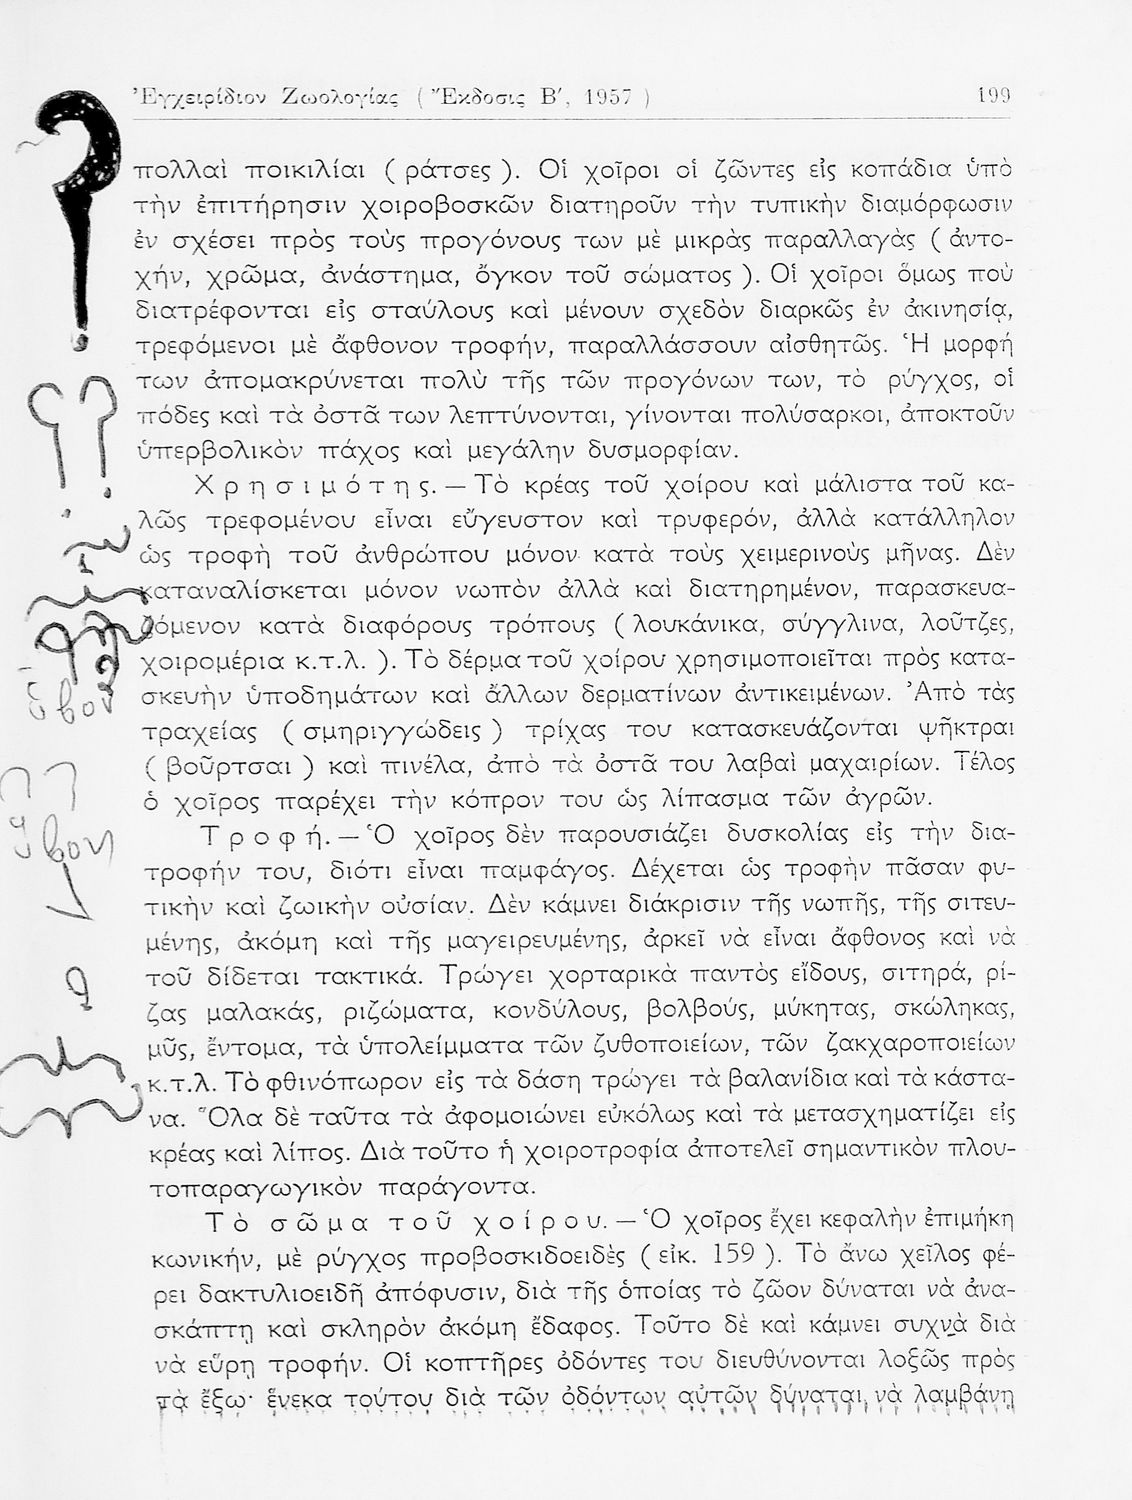 Ἐγχειρίδιον Ζωολογίας ( Ἔκδοσις Β′, 1957 ) 199
πολλαὶ ποικιλίαι ( ράτσες ). Οἱ χοῖροι οἱ ζῶντες εἰς κοπάδια ὑπὸ
τὴν ἐπιτήρησιν χοιροβοσκῶν διατηροῦν τὴν τυπικὴν διαμόρφωσιν
ἐν σχέσει πρὸς τοὺς προγόνους των μὲ μικρὰς παραλλαγὰς ( ἀντο-
χήν, χρῶμα, ἀνάστημα, ὄγκον τοῦ σώματος ). Οἱ χοῖροι ὅμως ποὺ
διατρέφονται εἰς σταύλους καὶ μένουν σχεδὸν διαρκῶς ἐν ἀκινησίᾳ,
τρεφόμενοι μὲ ἄφθονον τροφήν, παραλλάσσουν αἰσθητῶς. Ἡ μορφή
των ἀπομακρύνεται πολὺ τῆς τῶν προγόνων των, τὸ ρύγχος, οἱ
πόδες καὶ τὰ ὀστᾶ των λεπτύνονται, γίνονται πολύσαρκοι, ἀποκτοῦν
ὑπερβολικὸν πάχος καὶ μεγάλην δυσμορφίαν.
Χρησιμότης. — Τὸ κρέας τοῦ χοίρου καὶ μάλιστα τοῦ κα-
λῶς τρεφομένου εἶναι εὔγευστον καὶ τρυφερόν, ἀλλὰ κατάλληλον
ὡς τροφὴ τοῦ ἀνθρώπου μόνον κατὰ τοὺς χειμερινοὺς μῆνας. Δὲν
καταναλίσκεται μόνον νωπὸν ἀλλὰ καὶ διατηρημένον, παρασκευα-
ζόμενον κατὰ διαφόρους τρόπους ( λουκάνικα, σύγγλινα, λοῦτζες,
χοιρομέρια κ.τ.λ. ). Τὸ δέρμα τοῦ χοίρου χρησιμοποιεῖται πρὸς κατα-
σκευὴν ὑποδημάτων καὶ ἄλλων δερματίνων ἀντικειμένων. Ἀπὸ τὰς
τραχείας ( σμηριγγώδεις ) τρίχας του κατασκευάζονται ψῆκτραι
( βοῦρτσαι ) καὶ πινέλα, ἀπὸ τὰ ὀστᾶ του λαβαὶ μαχαιρίων. Τέλος
ὁ χοῖρος παρέχει τὴν κόπρον του ὡς λίπασμα τῶν ἀγρῶν.
Τροφή. — Ὁ χοῖρος δὲν παρουσιάζει δυσκολίας εἰς τὴν δια-
τροφήν του, διότι εἶναι παμφάγος. Δέχεται ὡς τροφὴν πᾶσαν φυ-
τικὴν καὶ ζωικὴν οὐσίαν. Δὲν κάμνει διάκρισιν τῆς νωπῆς, τῆς σιτευ-
μένης, ἀκόμη καὶ τῆς μαγειρευμένης, ἀρκεῖ νὰ εἶναι ἄφθονος καὶ νὰ
τοῦ δίδεται τακτικά. Τρώγει χορταρικὰ παντὸς εἴδους, σιτηρά, ρί-
ζας μαλακάς, ριζώματα, κονδύλους, βολβούς, μύκητας, σκώληκας,
μῦς, ἔντομα, τὰ ὑπολείμματα τῶν ζυθοποιείων, τῶν ζακχαροποιείων
κ.τ.λ. Τὸ φθινόπωρον εἰς τὰ δάση τρώγει τὰ βαλανίδια καὶ τὰ κάστα-
να. Ὅλα δὲ ταῦτα τὰ ἀφομοιώνει εὐκόλως καὶ τὰ μετασχηματίζει εἰς
κρέας καὶ λίπος. Διὰ τοῦτο ἡ χοιροτροφία ἀποτελεῖ σημαντικὸν πλου-
τοπαραγωγικὸν παράγοντα.
Τὸ σῶμα τοῦ χοίρου. — Ὁ χοῖρος ἔχει κεφαλὴν ἐπιμήκη
κωνικήν, μὲ ρύγχος προβοσκιδοειδὲς ( εἰκ. 159 ). Τὸ ἄνω χεῖλος φέ-
ρει δακτυλιοειδῆ ἀπόφυσιν, διὰ τῆς ὁποίας τὸ ζῶον δύναται νὰ ἀνα-
σκάπτῃ καὶ σκληρὸν ἀκόμη ἔδαφος. Τοῦτο δὲ καὶ κάμνει συχνὰ διὰ
νὰ εὕρῃ τροφήν. Οἱ κοπτῆρες ὀδόντες του διευθύνονται λοξῶς πρὸς
τὰ ἔξω· ἕνεκα τούτου διὰ τῶν ὀδόντων αὐτῶν δύναται νὰ λαμβάνῃ